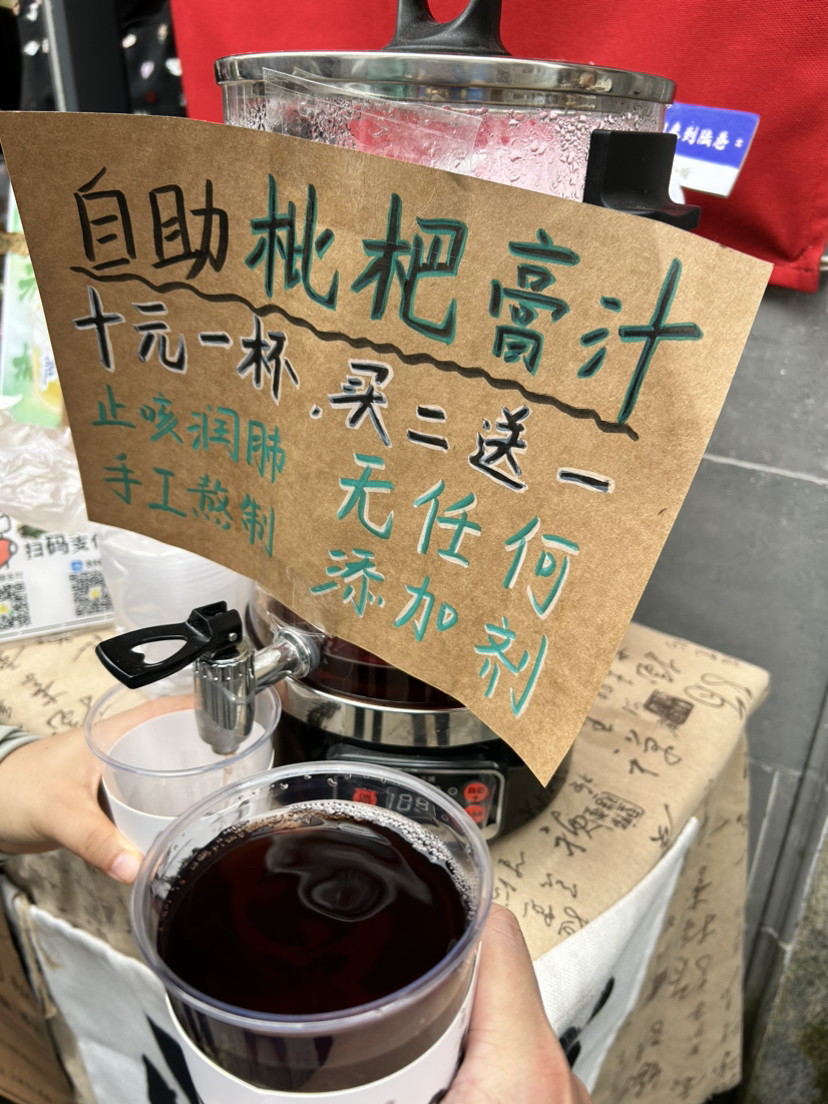 自助枇杷膏汁
十元一杯.买二送一
止咳润肺
手工熬制
无任何
添加剂
扫码支付